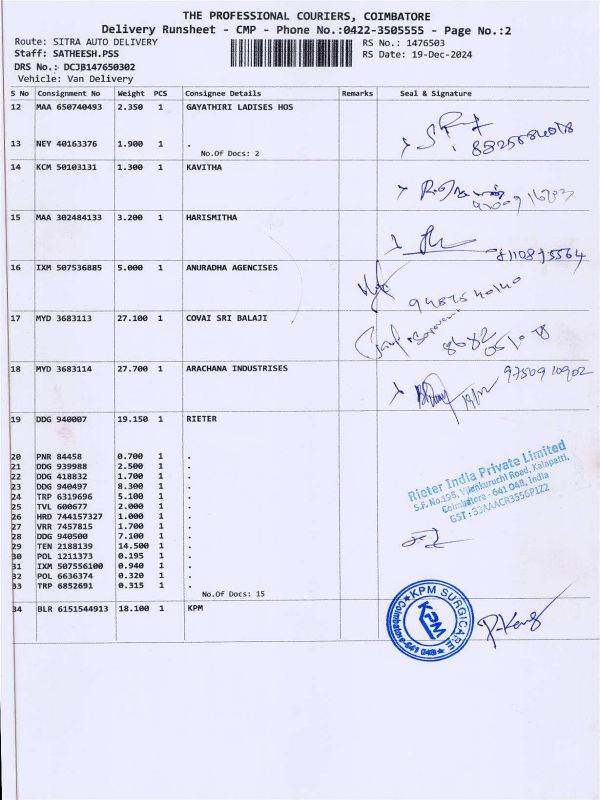 THE PROFESSIONAL COURIERS, COIMBATORE
Delivery Runsheet - CMP - Phone No.:0422-3505555 - Page No.:2
Route: SITRA AUTO DELIVERY RS No.: 1476503
Staff: SATHEESH.PSS RS Date: 19-Dec-2024
DRS No.: DCJB147650302
Vehicle: Van Delivery
S No Consignment No Weight PCS Consignee Details Remarks Seal & Signature
12 MAA 650740493 2.350 1 GAYATHIRI LADISES HOS
13 NEY 40163376 1.900 1 .
No.Of Docs: 2
14 KCM 50103131 1.300 1 KAVITHA
15 MAA 302484133 3.200 1 HARISMITHA
8110895564
16 IXM 507536885 5.000 1 ANURADHA AGENCISES
9487540140
17 MYD 3683113 27.100 1 COVAI SRI BALAJI
18 MYD 3683114 27.700 1 ARACHANA INDUSTRISES
9750910902
19/12
19 DDG 940007 19.150 1 RIETER
20 PNR 84458 0.700 1 .
21 DDG 939988 2.500 1 .
22 DDG 418832 1.700 1 .
23 DDG 940497 8.300 1 .
24 TRP 6319696 5.100 1 .
25 TVL 600677 2.000 1 .
26 HRD 744157327 1.000 1 .
27 VRR 7457815 1.700 1 .
28 DDG 940500 7.100 1 .
29 TEN 2188139 14.500 1 .
30 POL 1211373 0.195 1 .
31 IXM 507556100 0.940 1 .
32 POL 6636374 0.320 1 .
33 TRP 6852691 0.315 1 .
No.Of Docs: 15
Rieter India Private Limited
S.F. No.198, Vilankuruchi Road, Kalapatti,
Coimbatore - 641 048, India
GST : 33AAACR3556P1Z2
34 BLR 6151544913 18.100 1 KPM
KPM SURGICARE
KPM
Coimbatore-641 048